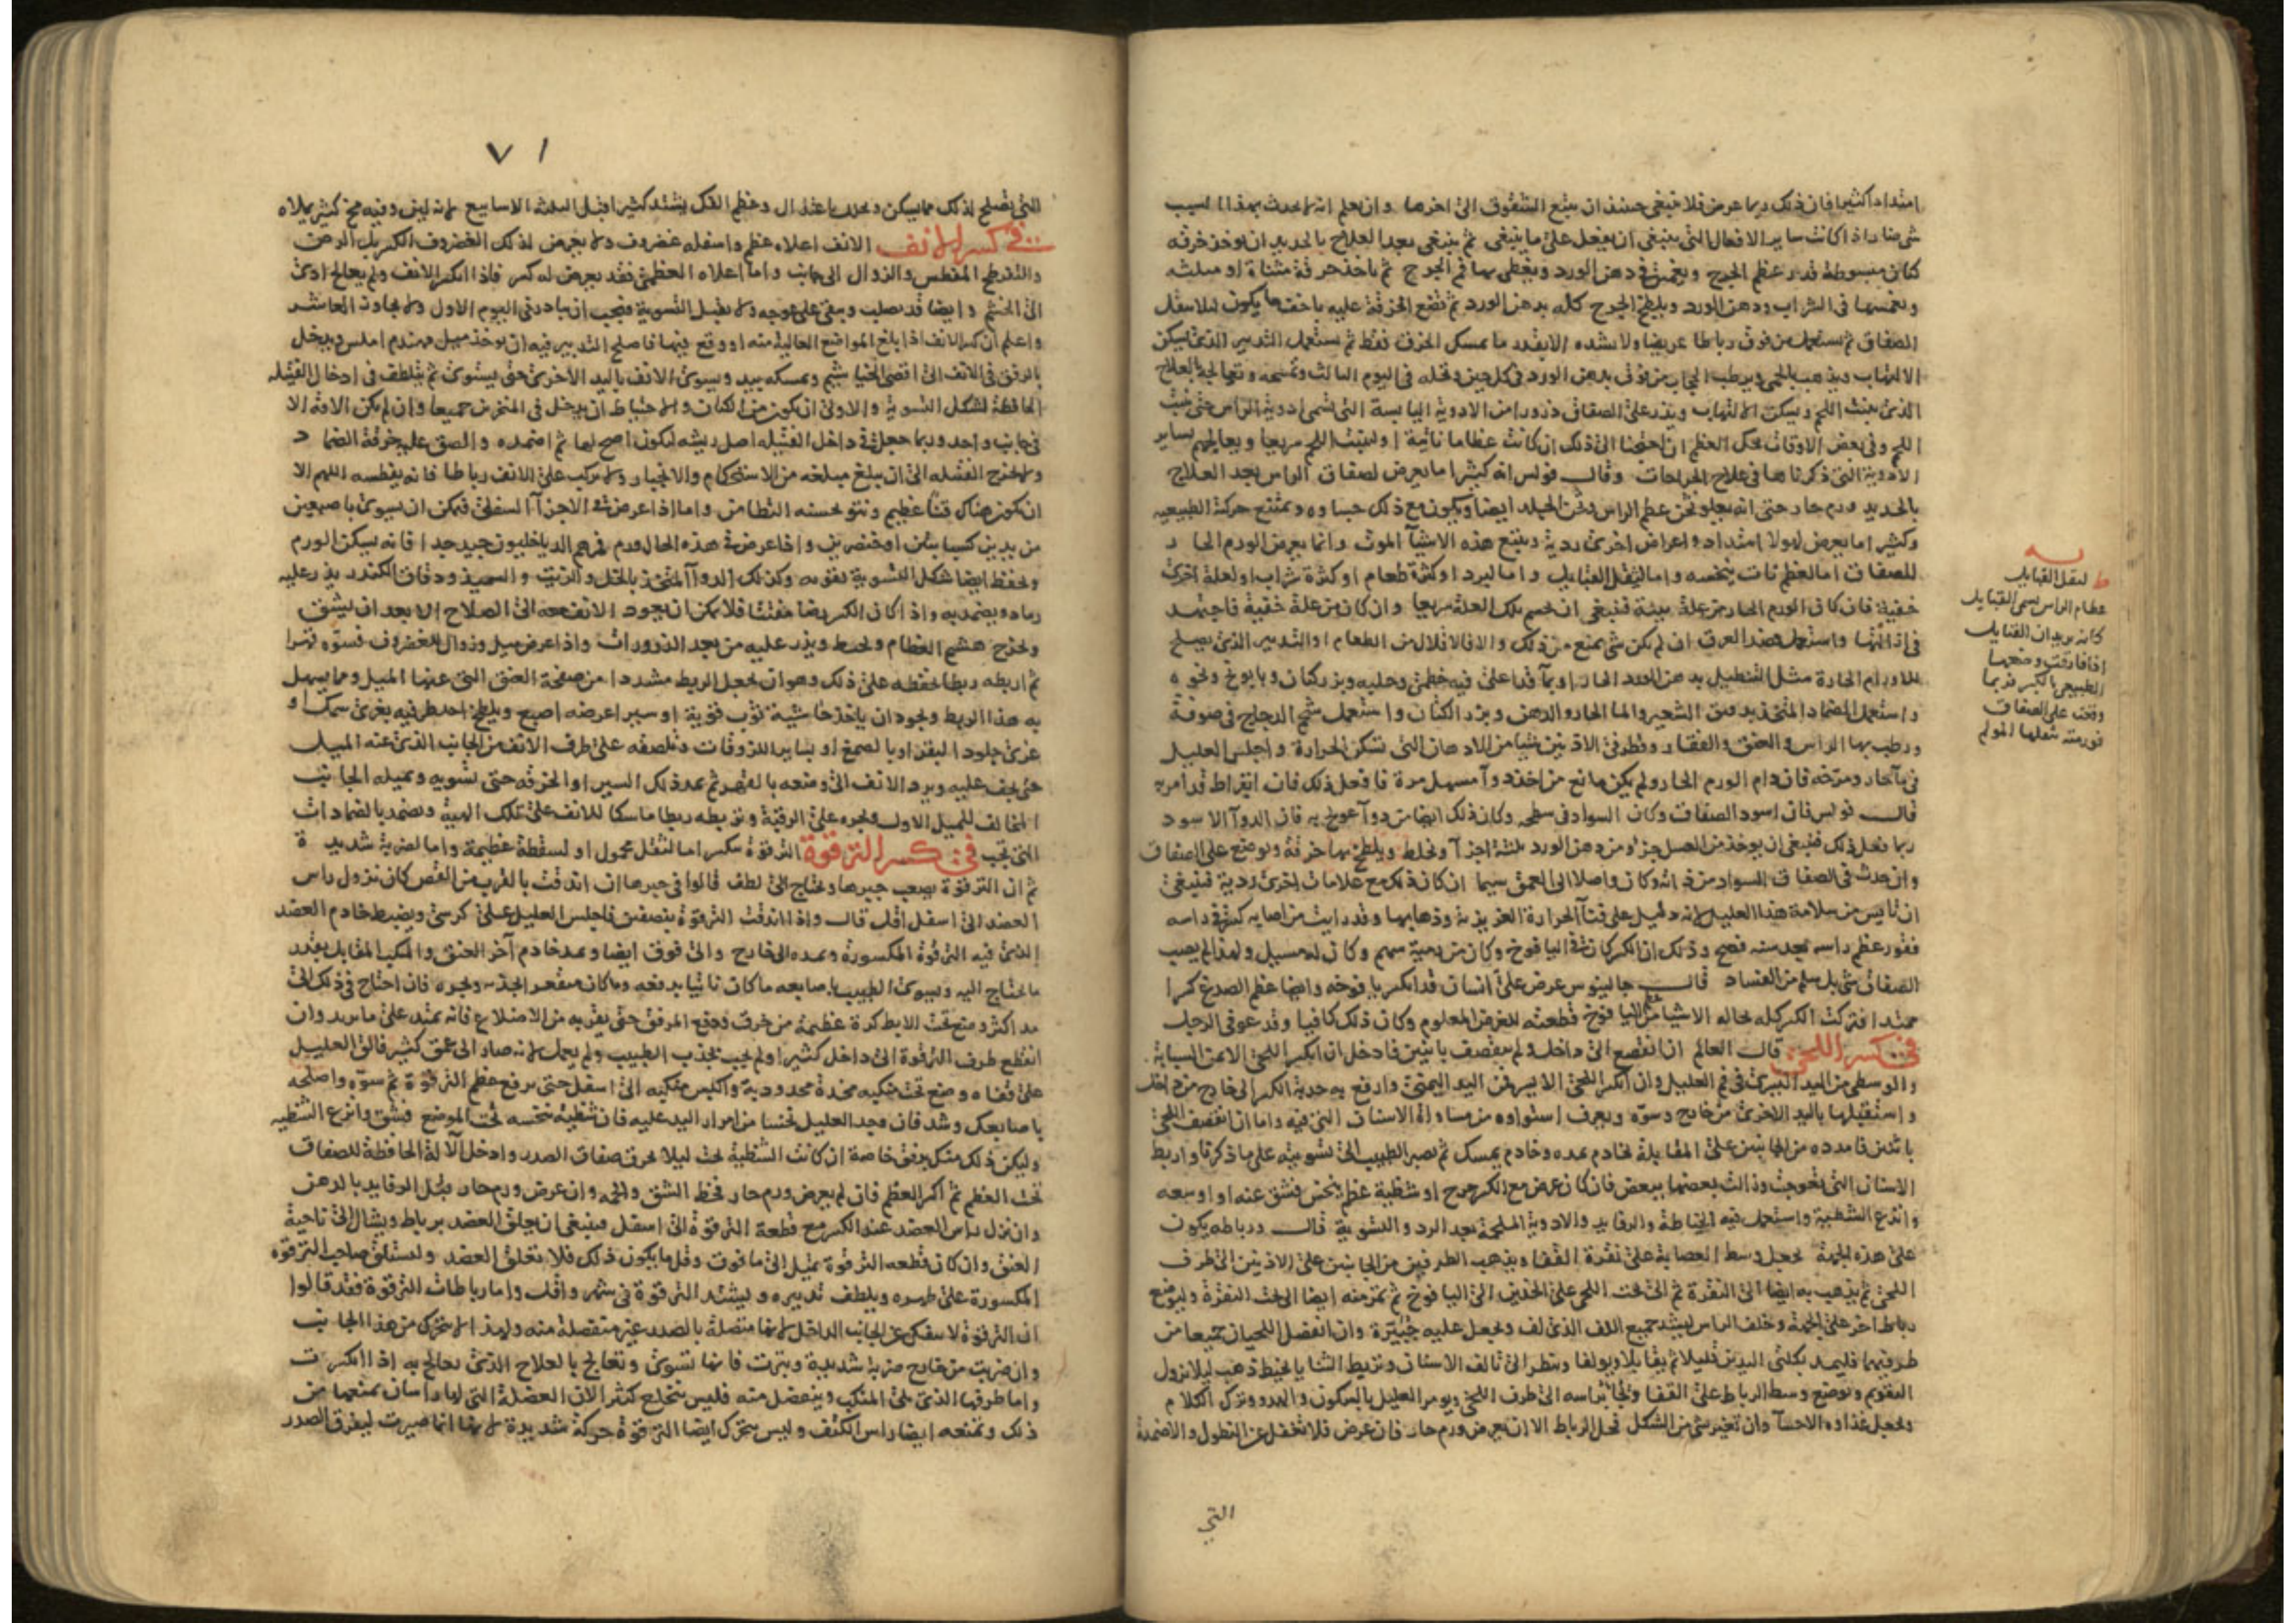 امتدادا كثيرا فان ذلك ربما عرض فلا ينبغي حينئذ ان يتبع الشقوق الى اخرها وان يعلم انه لا يحدث بهذا السبب
شي ضار اذا كانت ساير الافعال التي ينبغي ان يفعل على ما ينبغي ثم ينبغي بعد العلاج بالحديد ان يوخذ خرقه
كتان مبسوطة قدر عظم الجرح ويغمس في دهن الورد ويغطى بها فم الجرح ثم ياخذ خرقة مثناة او مثلثه
ويغمسها في الشراب ودهن الورد ويلطخ الجرح كله بدهن الورد ثم تضع الخرقة عليه باخف ما يكون ليلا يثقل
الصفاق ثم يستعمل من فوق رباطا عريضا ولا يشده الا بقدر ما يمسك الخرق فقط ثم يستعمل التدبير الذي يسكن
الالتهاب ويذهب بالحمى ويرطب الحجاب من فوق بدهن الورد في كل حين وتحله في اليوم الثالث وتمسحه وتعالجه بالعلاج
الذي ينبت اللحم ويسكن الالتهاب ويذر على الصفاق ذرورا من الادوية اليابسة التي تسمى ادوية الراس حتى ينبت
اللحم وفي بعض الاوقات يحك العظم ان احتجنا الى ذلك ان كانت عظاما ناتية او لينبت اللحم سريعا ويعالجهم بساير
الادوية التي ذكرناها في علاج الجراحات وقال فولس انه كثيرا ما يعرض لصفاق الراس بعد العلاج
بالحديد ورم حار حتى انه يعلو ثخن عظم الراس وثخن الجلد ايضا ويكون مع ذلك جساوه ويمتنع حركة الطبيعيه
وكثيرا ما يعرض لهولا امتداد واعراض اخرى ردية ويتبع هذه الاشيآ الموت وانما يعرض الورم الحار
للصفاق اما لعظم نات ينخسه واما لثقل القبايل واما لبرد او كثرة طعام او كثرة شراب او لعلة اخرى
خفية فان كان الورم الحار من علة بينة فينبغي ان تحسم تلك العلة سريعا وان كان من علة خفية فاجتهد
في ازالتها واستعمل فصد العرق ان لم يكن شي يمنع من ذلك والا فالاقلال من الطعام او التدبير الذي يصلح
للاورام الحارة مثل التنطيل بدهن الورد الحار او بمآ قد اغلى فيه خطمي وحلبه وبزر كتان وبابونج ونحوه
واستعمل الضماد المتخذ بدقيق الشعير والما الحار والدهن وبزر الكتان واستعمل شحم الدجاج في صوفة
ورطب بها الراس والعنق والفقار وقطر في الاذنين شيا من الادهان التي تسكن الحرارة واجلس العليل
في مآ حار ومرخه فان دام الورم الحار ولم يكن مانع من اخذ دوآ مسهل مرة فافعل ذلك فان ابقراط قد امر به
قال فولس فان اسود الصفاق وكان السواد في سطحه وكان ذلك ايضا من دوآ عولج به فان الدوآ الاسود
ربما فعل ذلك فينبغي ان يوخذ من العسل جزؤ ومن دهن الورد ثلثة اجزآ ويخلط ويلطخ بها خرقة وتوضع على الصفاق
وان حدث في الصفاق السواد من ذاته وكان واصلا الى العمق سيما ان كان ذلك مع علامات اخرى ردية فينبغي
ان تايس من سلامة هذا العليل لانه دليل على فنآ الحرارة الغريزية وذهابها وقد رايت من اصابه كسر في راسه
فقور عظم راسه بعد سنه فصح وذلك ان الكسر كان في اليافوخ وكان من رمية سهم وكان له مسيل ولهذا لم يصب
الصفاق شي بل سلم من الفساد قال جالينوس عرض على انسان قد انكسر يافوخه وايضا عظم الصدغ كسرا
ممتدا فتركت الكسر كله بحاله الا شيا من اليافوخ قطعته للغرض المعلوم وكان ذلك كافيا وقد عوفي الرجل
في كسر اللحى قال العالم ان انقصع الى داخل ولم ينقصف باثنين فادخل ان انكسر اللحى الايمن السبابة
والوسطى من اليد اليسرى في فم العليل وان انكسر اللحى الايسر فمن اليد اليمنى وادفع به حدبة الكسر الى خارج من داخل
واستقبلها باليد الاخرى من خارج وسوّه ويعرف استواوه من مساواة الاسنان التي فيه واما ان انقصف اللحى
باثنين فامدده من الجانبين على المقابلة بخادم يمده وخادم يمسك ثم يصير الطبيب الى تسويته على ما ذكرنا واربط
الاسنان التي تعوجت وزالت بعضها ببعض فان كان عرض مع الكسر جرح او شظية عظم ينخس فشق عنه او اوسعه
وانزع الشظية واستعمل فيه الخياطة والرفايد والادوية الملحمة بعد الرد والتسوية قال ورباطه يكون
على هذه الجهة يجعل وسط العصابة على نقرة القفا ويذهب الطرفين من الجانبين على الاذنين الى طرف
اللحى ثم يذهب به ايضا الى النقرة ثم الى تحت اللحى على الخدين الى اليافوخ ثم تمر منه ايضا الى تحت النقرة وليوضع
رباط اخر على الجبهة وخلف الراس ليشد جميع اللف الذي لف ويجعل عليه جبيرة وان انفصل اللحيان جميعا من
طرفيهما فليمد بكلتي اليدين قليلا ثم يقابلا ويولفا وينظر الى تالف الاسنان وتربط الثنايا بخيط ذهب ليلا يزول
التقويم وتوضع وسط الرباط على القفا ويجا براسه الى طرف اللحى ويومر العليل بالسكون والهدو وترك الكلام
ويجعل غذاوه الاحسآ وان تغير شي من الشكل فحل الرباط الا ان يعرض ورم حار فان عرض فلا تغفل عن التنطول والاضمدة
التي
لثقل القبايل
عظام الراس تسمى القبايل
كانه يريد ان القبايل
اذا فارقت وضعها
الطبيعي بالكسر فربما
وقعت على الصفاق
فورمته بثقلها المولم
٧١
التي تصلح لذلك مما يسكن ويحلل باعتدال وعظم الفك يشتد كثيرا قبل الثلثة الاسابيع لانه لين وفيه مخ كثير يملاه
في كسر الانف الانف اعلاه عظم واسفله غضروف ولا يعرض لذلك الغضروف الكسر بل الرض
والتفرطح المفطس والزوال الى جانب واما اعلاه العظمي فقد يعرض له كسر فاذا انكسر الانف ولم يعالج ادى
الى الخشم وايضا قد يصلب ويبقى على عوجه ولا يقبل التسوية فيجب ان يبادر في اليوم الاول ولا يجاوز العاشر
واعلم ان كسر الانف اذا بلغ المواضع العالية منه او وقع فيها فاصلح التدبير فيه ان يوخذ ميل مهندم املس ويدخل
بالرفق في الانف الى اقصى الخياشيم ويمسكه بيد ويسوى الانف باليد الاخرى حتى يستوى ثم يتلطف في ادخال الفتيلة
الحافظة لشكل التسوية والاولى ان يكون من الكتان والاحتياط ان يدخل في المنخرين جميعا وان لم يكن الافة الا
في جانب واحد وربما جعل في داخل الفتيله اصل ريشه ليكون اصح لها ثم اضمده والصق عليه خرقة الضماد
ولا يخرج الفتيله الى ان يبلغ مبلغه من الاستحكام والانجبار ولا يركب على الانف رباطا فانه يفطسه اللهم الا
ان يكون هناك نتا عظيم ونتو يحسنه التطامن واما اذا عرض في الاجزآ السفلى فيمكن ان يسوى باصبعين
من يدين كسبابتين او خنصرين واذا عرض في هذه الحال ورم فمرهم الدياخيلون جيد جدا فانه يسكن الورم
ويحفظ ايضا شكل التسوية بقوته وكذلك الدوآ المتخذ بالخل والزيت والسميذ ودقاق الكندر يذر عليه
رماد ويضمد به واذا كان الكسر رضا مفتتا فلا يمكن ان يعود الانف معه الى الصلاح الا بعد ان يشق
ويخرج هشيم العظام ويخيط ويذر عليه من بعد الذرورات واذا عرض ميل وزوال للغضروف فسوّه قسرا
ثم اربطه ربطا يحفظه على ذلك وهو ان يجعل الربط مشددا من صفحة العنق التي عنها الميل ومما يسهل
به هذا الربط ويجود ان ياخذ حاشية ثوب قوية او سير اعرضه اصبع ويلطخ احد طرفيه بغرى سمك او
غرى جلود البقر او بالصمغ او بساير اللزوقات وتلصقه على طرف الانف من الجانب الذي عنه الميل
حتى يجف عليه ويرد الانف الى وضعه بالقهر ثم يمد ذلك السير او الخرقه حتى تسويه وتميله الجانب
المخالف للميل الاول ويجره على الرقبة وتربطه ربطا ماسكا للانف على تلك الهيية وتضمد بالضمادات
التي تجب في كسر الترقوة الترقوة تنكسر اما لثقل محمول او لسقطة عظيمة واما لضربة شديدة
ثم ان الترقوة يصعب جبرها ويحتاج الى لطف قالوا في جبرها ان اندقت بالقرب من القص كان نزول راس
العضد الى اسفل اقل قال واذا اندقت الترقوة بنصفين فاجلس العليل على كرسي ويضبط خادم العضد
الذي فيه الترقوة المكسورة ويمده الى خارج والى فوق ايضا ويمد خادم آخر العنق والمنكب المقابل بقدر
ما يحتاج اليه ويسوى الطبيب باصابعه ما كان ناتيا يدفعه وما كان منقعر الجذبه ويجره فان احتاج في ذلك الى
مد اكثر وضع تحت الابط كرة عظيمة من خرق ودفع المرفق حتى يقربه من الاضلاع فانه يمتد على ما يريد وان
انقطع طرف الترقوة الى داخل كثيرا ولم يجب بجذب الطبيب ولم يعمل لانه صار الى عمق كثير فالق العليل
على قفاه وضع تحت منكبه مخدة محدودبة واكبس منكبه الى اسفل حتى يرفع عظم الترقوة ثم سوّه واصلحه
باصابعك وشد فان وجد العليل نخسا من امرار اليد عليه فان شظية تنخسه تحت الموضع فشق وانزع الشظيه
وليكن ذلك منك برفق خاصة ان كانت الشظية تحت ليلا يخرق صفاق الصدر وادخل الآلة الحافظة للصفاق
تحت العظم ثم اكسر العظم فان لم يعرض ورم حار فخط الشق والحمه وان عرض ورم حار فبل الرفايد بالدهن
وان نزل راس العضد عند الكسر مع قطعة الترقوة الى اسفل فينبغي ان يعلق العضد برباط ويشال الى ناحية
العنق وان كان قطعه الترقوة يميل الى ما فوق وقل ما يكون ذلك فلا تعلق العضد وليستلق صاحب الترقوة
المكسورة على ظهره ويلطف تدبيره ويشتد الترقوة في شهر واقل واما رباطات الترقوة فقد قالوا
ان الترقوة لا تنفك عن الجانب الداخل لانها متصلة بالصدر غير منفصلة منه ولهذا لا يتحرك من هذا الجانب
وان ضربت من خارج ضربة شديدة وبترت فانها تسوى وتعالج بالعلاج الذي يعالج به اذا انكسرت
واما طرفها الذي يلي المنكب وينفصل منه فليس يتخلع كثيرا لان العضلة التي لها راسان يمنعها من
ذلك وتمنعه ايضا راس الكتف وليس يتحرك ايضا الترقوة حركة شديدة لانها انما صيرت ليفرق الصدر